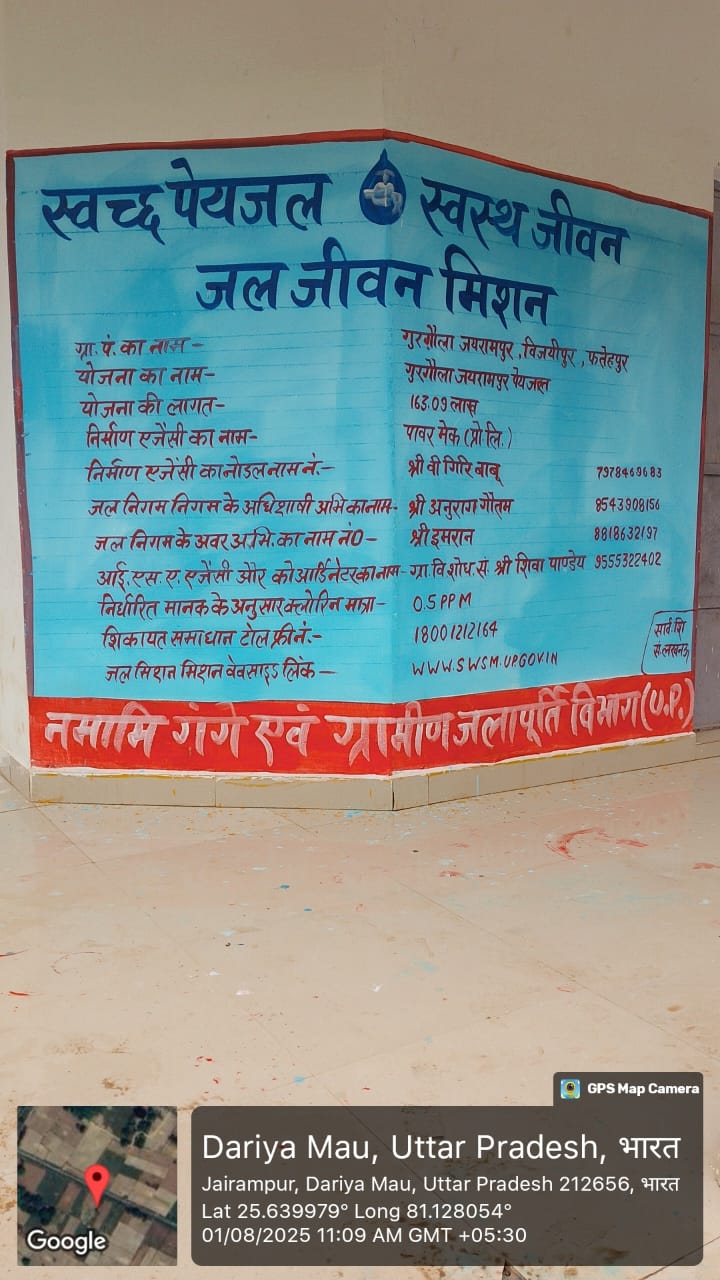 स्वच्छ पेयजल स्वस्थ जीवन
जल जीवन मिशन
ग्रा. पं. का नाम - गुरगौला जयरामपुर, विजयीपुर, फतेहपुर
योजना का नाम - गुरगौला जयरामपुर पेयजल
योजना की लागत - 163.09 लाख
निर्माण एजेंसी का नाम - पावर मेक (प्रो.लि.)
निर्माण एजेंसी का नोडल नाम नं. - श्री वी गिरि बाबू 7978469683
जल निगम निगम के अधिशाषी अभि का नाम - श्री अनुराग गौतम 8543908156
जल निगम के अवर अ.भि. का नाम नं0 - श्री इमरान 8818632197
आई. एस. ए. एजेंसी और कोआर्डिनेटर का नाम - ग्रा. वि. शोध. सं. श्री शिवा पाण्डेय 9555322402
निर्धारित मानक के अनुसार क्लोरिन मात्रा - 0.5 PPM
शिकायत समाधान टोल फ्री नं. - 18001212164
जल मिशन मिशन वेबसाइड लिंक - WWW.SWSM.UP.GOV.IN
सार्व. शि
सं. लखनऊ
नमामि गंगे एवं ग्रामीण जलापूर्ति विभाग (U.P.)
GPS Map Camera
Dariya Mau, Uttar Pradesh, भारत
Jairampur, Dariya Mau, Uttar Pradesh 212656, भारत
Lat 25.639979° Long 81.128054°
01/08/2025 11:09 AM GMT +05:30
Google